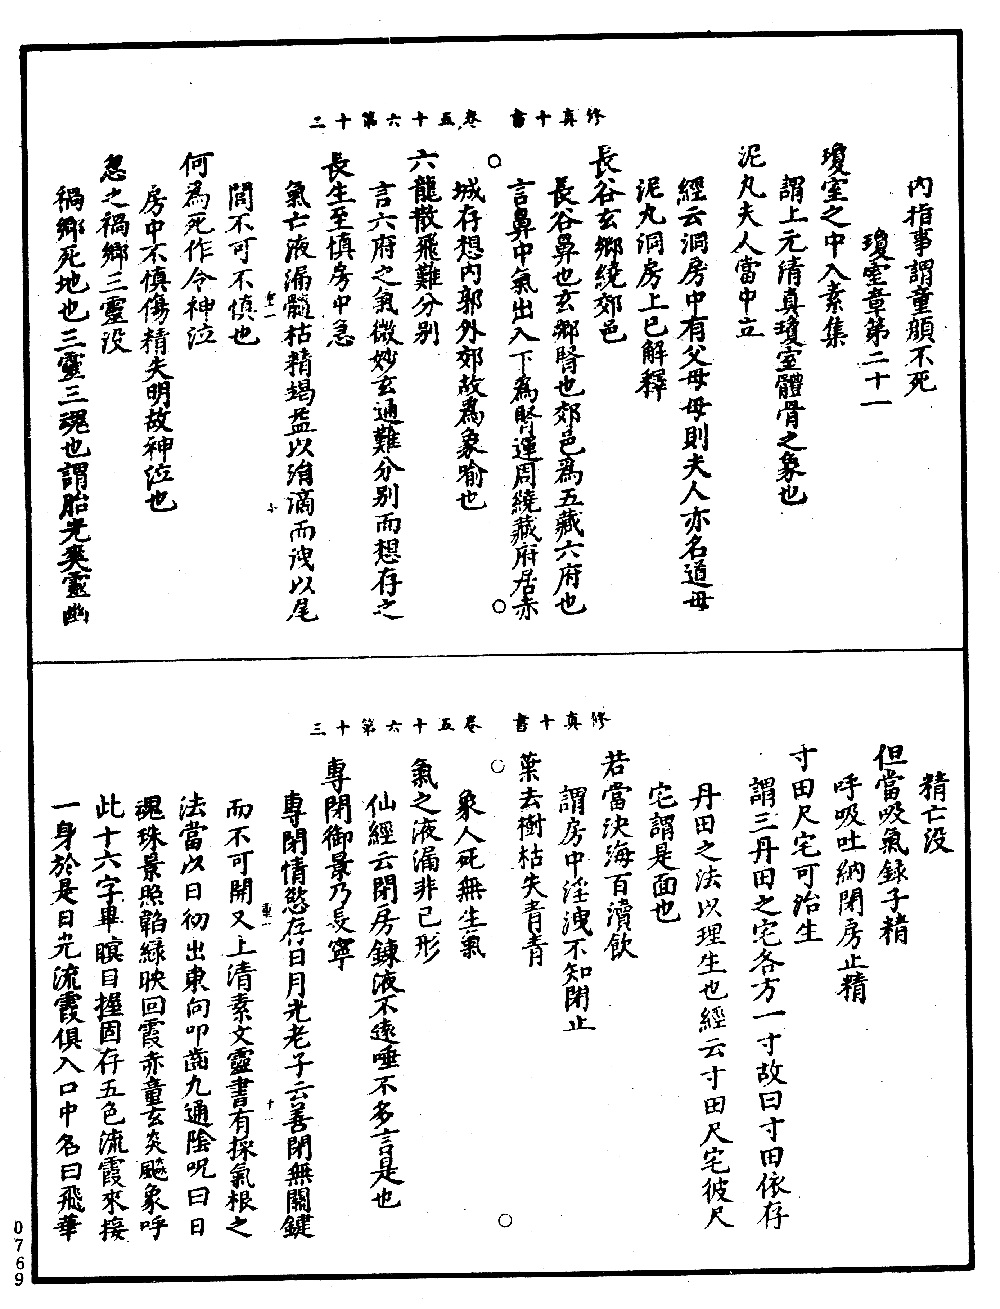 修真十書　卷五十六第十二
內指事謂童顏不死
瓊室章第二十一
瓊室之中八素集
謂上元清真瓊室體骨之象也
泥丸夫人當中立
經云洞房中有父母母則夫人亦名道母
泥丸洞房上已解釋
長谷玄鄉繞郊邑
長谷鼻也玄鄉腎也郊邑為五藏六府也
言鼻中氣出入下為腎運周繞藏府居赤
城存想內郭外郊故為象喻也
六龍散飛難分別
言六府之氣微妙玄通難分別而想存之
長生至慎房中急
氣亡液漏髓枯精竭益以洧滴而洩以尾
閭不可不慎也
何為死作令神泣
房中不慎傷精失明故神泣也
忽之禍鄉三靈沒
禍鄉死地也三靈三魂也謂胎光爽靈幽
修真十書　卷五十六第十三
精亡沒
但當吸氣録子精
呼吸吐納閉房止精
寸田尺宅可治生
謂三丹田之宅各方一寸故曰寸田依存
丹田之法以理生也經云寸田尺宅彼尺
宅謂是面也
若當決海百瀆飲
謂房中淫洩不知閉止
葉去樹枯失青青
象人死無生氣
氣之液漏非己形
仙經云閉房鍊液不遠唾不多言是也
專閉御景乃長寧
專閉情慾存日月光老子云善閉無關鍵
而不可開又上清素文靈書有採氣根之
法當以日初出東向叩齒九通陰呪曰日
魂珠景照韜緑映回霞赤童玄炎飇象呼
此十六字畢瞑目握固存五色流霞來接
一身於是日光流霞俱入口中名曰飛華
0769